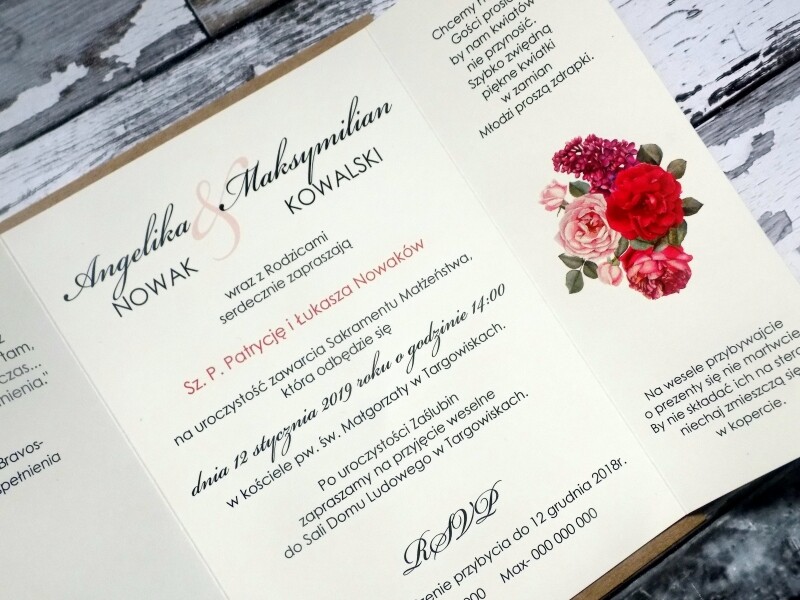 tam,
czas...
nienia."
Bravos-
spełnienia
Angelika & Maksymilian
NOWAK KOWALSKI
wraz z Rodzicami
serdecznie zapraszają
Sz. P. Patrycję i Łukasza Nowaków
na uroczystość zawarcia Sakramentu Małżeństwa,
która odbędzie się
dnia 12 stycznia 2019 roku o godzinie 14:00
w kościele pw. św. Małgorzaty w Targowiskach.
Po uroczystości Zaślubin
zapraszamy na przyjęcie weselne
do Sali Domu Ludowego w Targowiskach.
RSVP
przybycia do 12 grudnia 2018r.
000 Max- 000 000 000
Chcemy
Gości prosić
by nam kwiatów
nie przynosić.
Szybko zwiędną
piękne kwiatki
w zamian
Młodzi proszą zdrapki.
Na wesele przybywajcie
o prezenty się nie martwcie
By nie składać ich na
niechaj zmieszczą się
w kopercie.